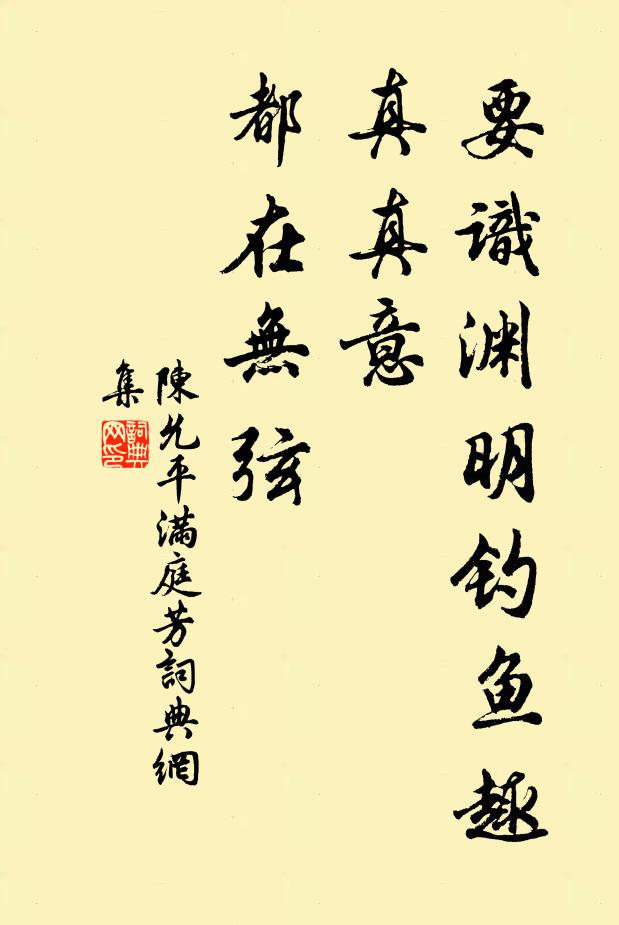 要識渊明钓鱼趣
真真意
都在無弦
陳允平滿庭芳詞典網
集
詞典网印